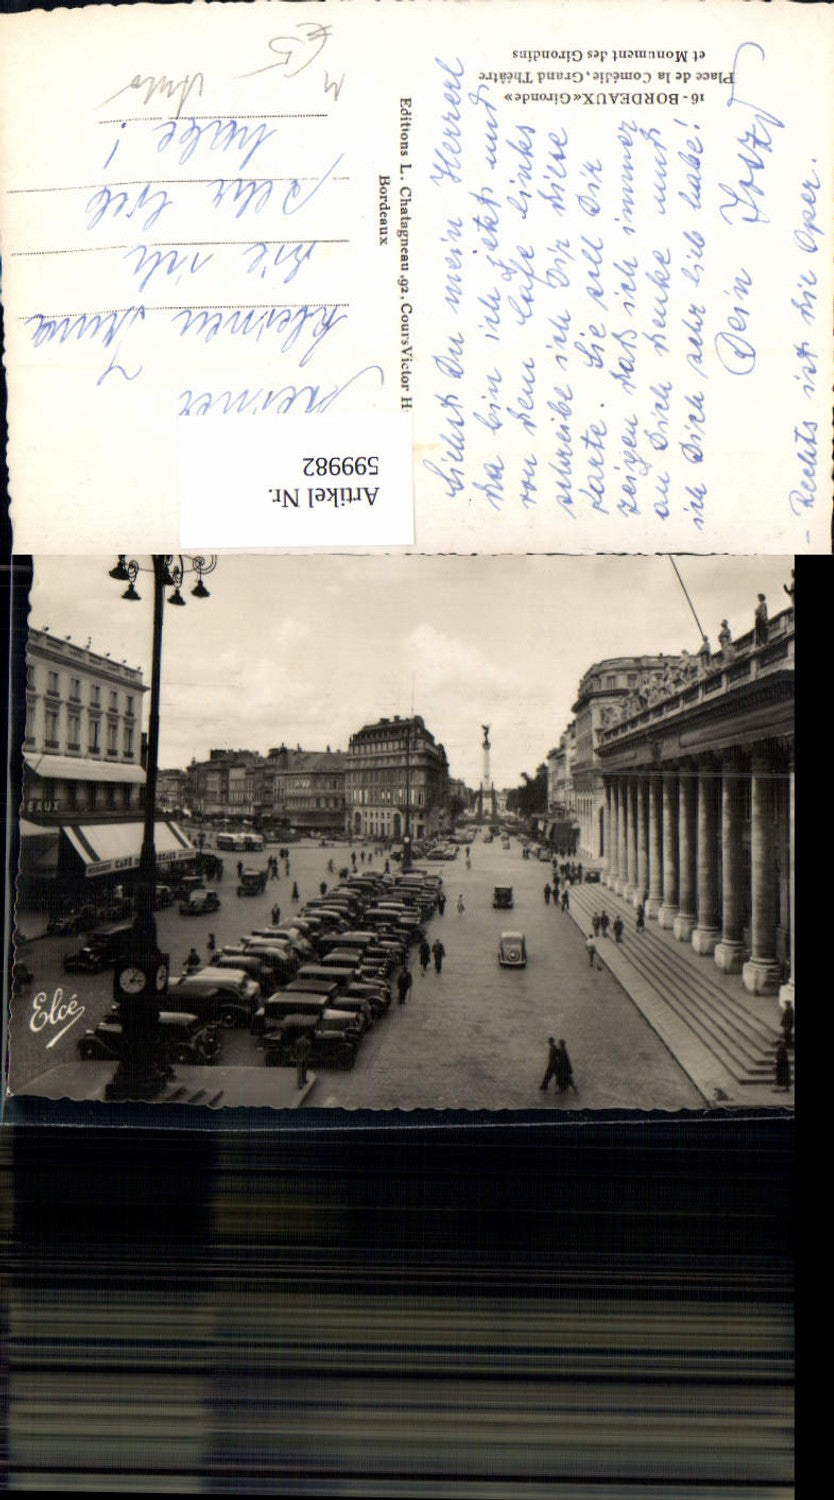 16 - BORDEAUX «Gironde»
Place de la Comédie, Grand Théâtre
et Monument des Girondins
Siehst Du mein Herzerl
da bin ich jetzt und
von dem Cafe links
schreibe ich Dir diese
Karte. Sie soll Dir
zeigen daß ich immer
an Dich denke und
ich Dich sehr lieb habe!
Dein
- Rechts ist die Oper.
Editions L. Chatagneau, 92, Cours Victor H
Bordeaux
Meiner
kleinen
die ich
sehr lieb
habe!
Auto
€5
Artikel Nr.
599982
EAUX
CAFE
Elcé